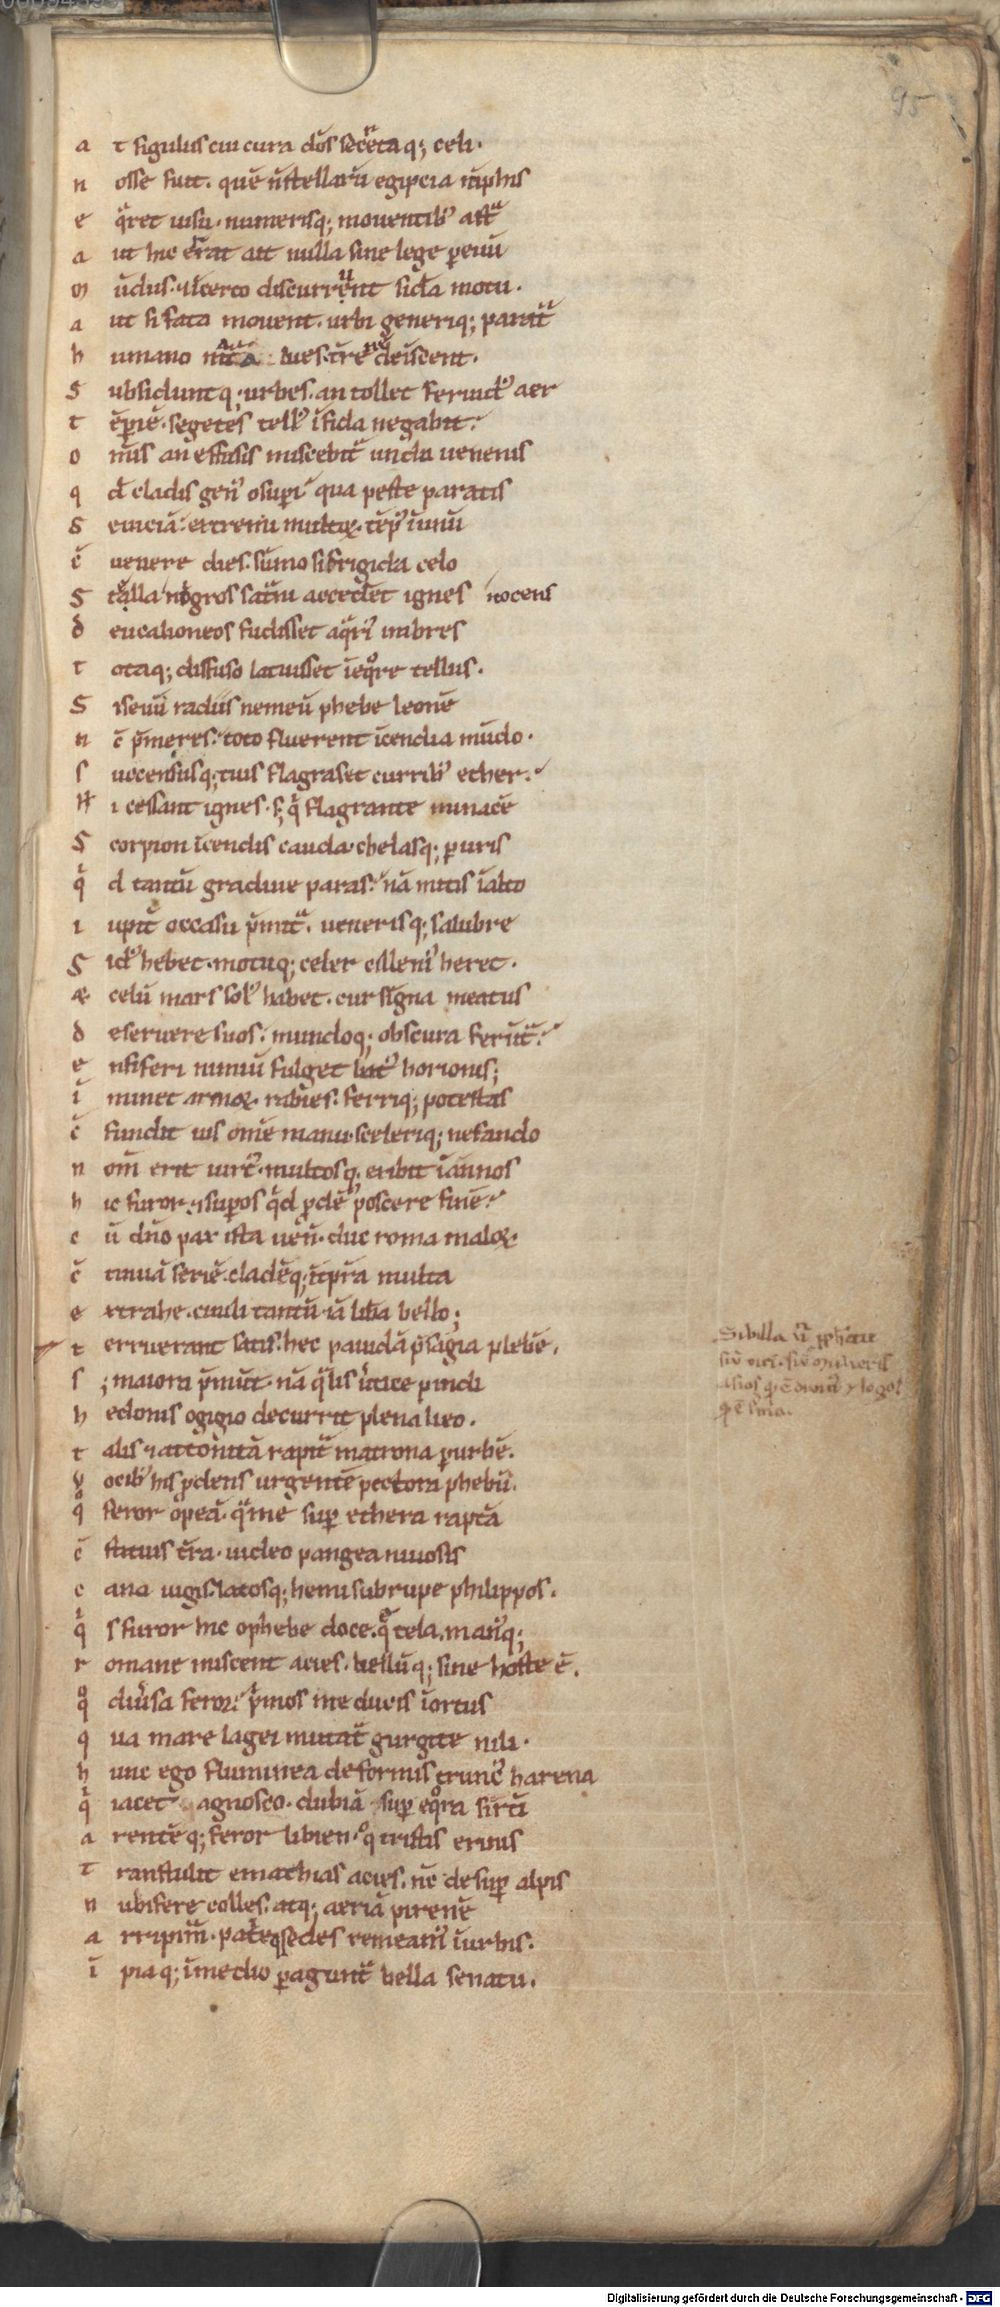 95
a t figulus cui cura dōs secreta q; celi.
n osse fuit. quē n̄ stellarū egipcia mēphis
e q̄ret uisu. numerisq; mouentib' astͣ
a ut hic errat ait nulla sine lege p euū
m ūdus. ⁊ īcerto discurrunt sidͣa motu.
a ut si fata mouent. urbi generiq; paratͬ
h umano matura lues. tr̄e ne deiscent.
S ubsiduntq; urbes. an tollet feruid' aer
t ēp̄iē. segetes tell' īfida negabit.
o mīs an effusis miscebitͬ unda uenenis
q d̄ cladis gen' o sup̄i qua peste paratis
S euiciā: extremi multoꝝ. tēp' ī unū
c̄ uenere dies. sūmo si frigida celo
S tella nigros saturni accēdet ignes nocens
d eucalioneos fudisset aq̄ri' imbres
t otaq; diffuso latuisset ī eq̊re tellus.
S i seuū radiis nemeū phebe leonē
n c̄ p̄meres. toto fluerent īcendia mūdo.
s uccensusq; tuis flagraset currib' ether.
H i cessant ignes. t; q̄ flagrante minacē
S corpion īcendis cauda. chelasq; p uris
q̄ d tantū gradiue paras. nā mitis ī alto
i upitͬ occasu p̄mitͬ. uenerisq; salubre
S id' hebet. motuq; celer cilleni' heret.
æ celū mars sol' habet. cur signa meatus
d eseruere suos. mundoq; obscura ferūtͬ.
e nsiferi nimiū fulget lat' horionis;
ī minet armoꝝ. rabies. ferriq; potestas
c̄ fundit ius om̄e manu. sceleriq; nefando
n om̄ erit uirt'. multosq; exibit ī annos
h ic furor. ⁊ sup̄os q̄d p̄dē' poscere finē.
c ū dn̄o pax ista uēit. duc roma maloꝝ
c̄ tinuā seriē. cladēq; ī tp̄ra multa
e xtrahe. ciuili tantū iā lib̄a bello;
t erruerant satis. hec pauidā p̄sagia plebē.
s ; maiora p̄mūt. nā q̄lis ūtice pindi
h edonis ogigio decurrit plena lieo.
t alis ⁊ attonitā rapitͬ matrona p urbē.
V ocib' his p̄dens urgentē pectora phebū.
q̊ feror o peā. q̄ me sup̄ ethera raptā
c̄ stituis t̄ra. uideo pangea niuosis
c ana iugis. latosq; hemi sub rupe philippos.
q̄ s furor hic o phebe doce. q̊ tela. man'q;
r omane miscent acies. bellūq; sine hoste ē.
q̊ diūsa feror. p̄mos me ducis ī ortus
q ua mare lagei mutatͬ gurgite nili.
h unc ego fluminea deformis trunc' harena
q̄ iacet agnosco. dubiā sup̄ eq̊ra sirtī
a rentēq; feror libien. q̊ tristis erinis
t ranstulit emathias acies. nc̄ desup̄ alpis
n ubifere colles. atq; aeriā pirenē
a rripim̄. patrieq; sedes remeam' ī urbis.
ī piaq; ī medio p̄aguntͬ bella senatu.
Sibilla
Digitalisierung gefördert durch die Deutsche Forschungsgemeinschaft - DFG